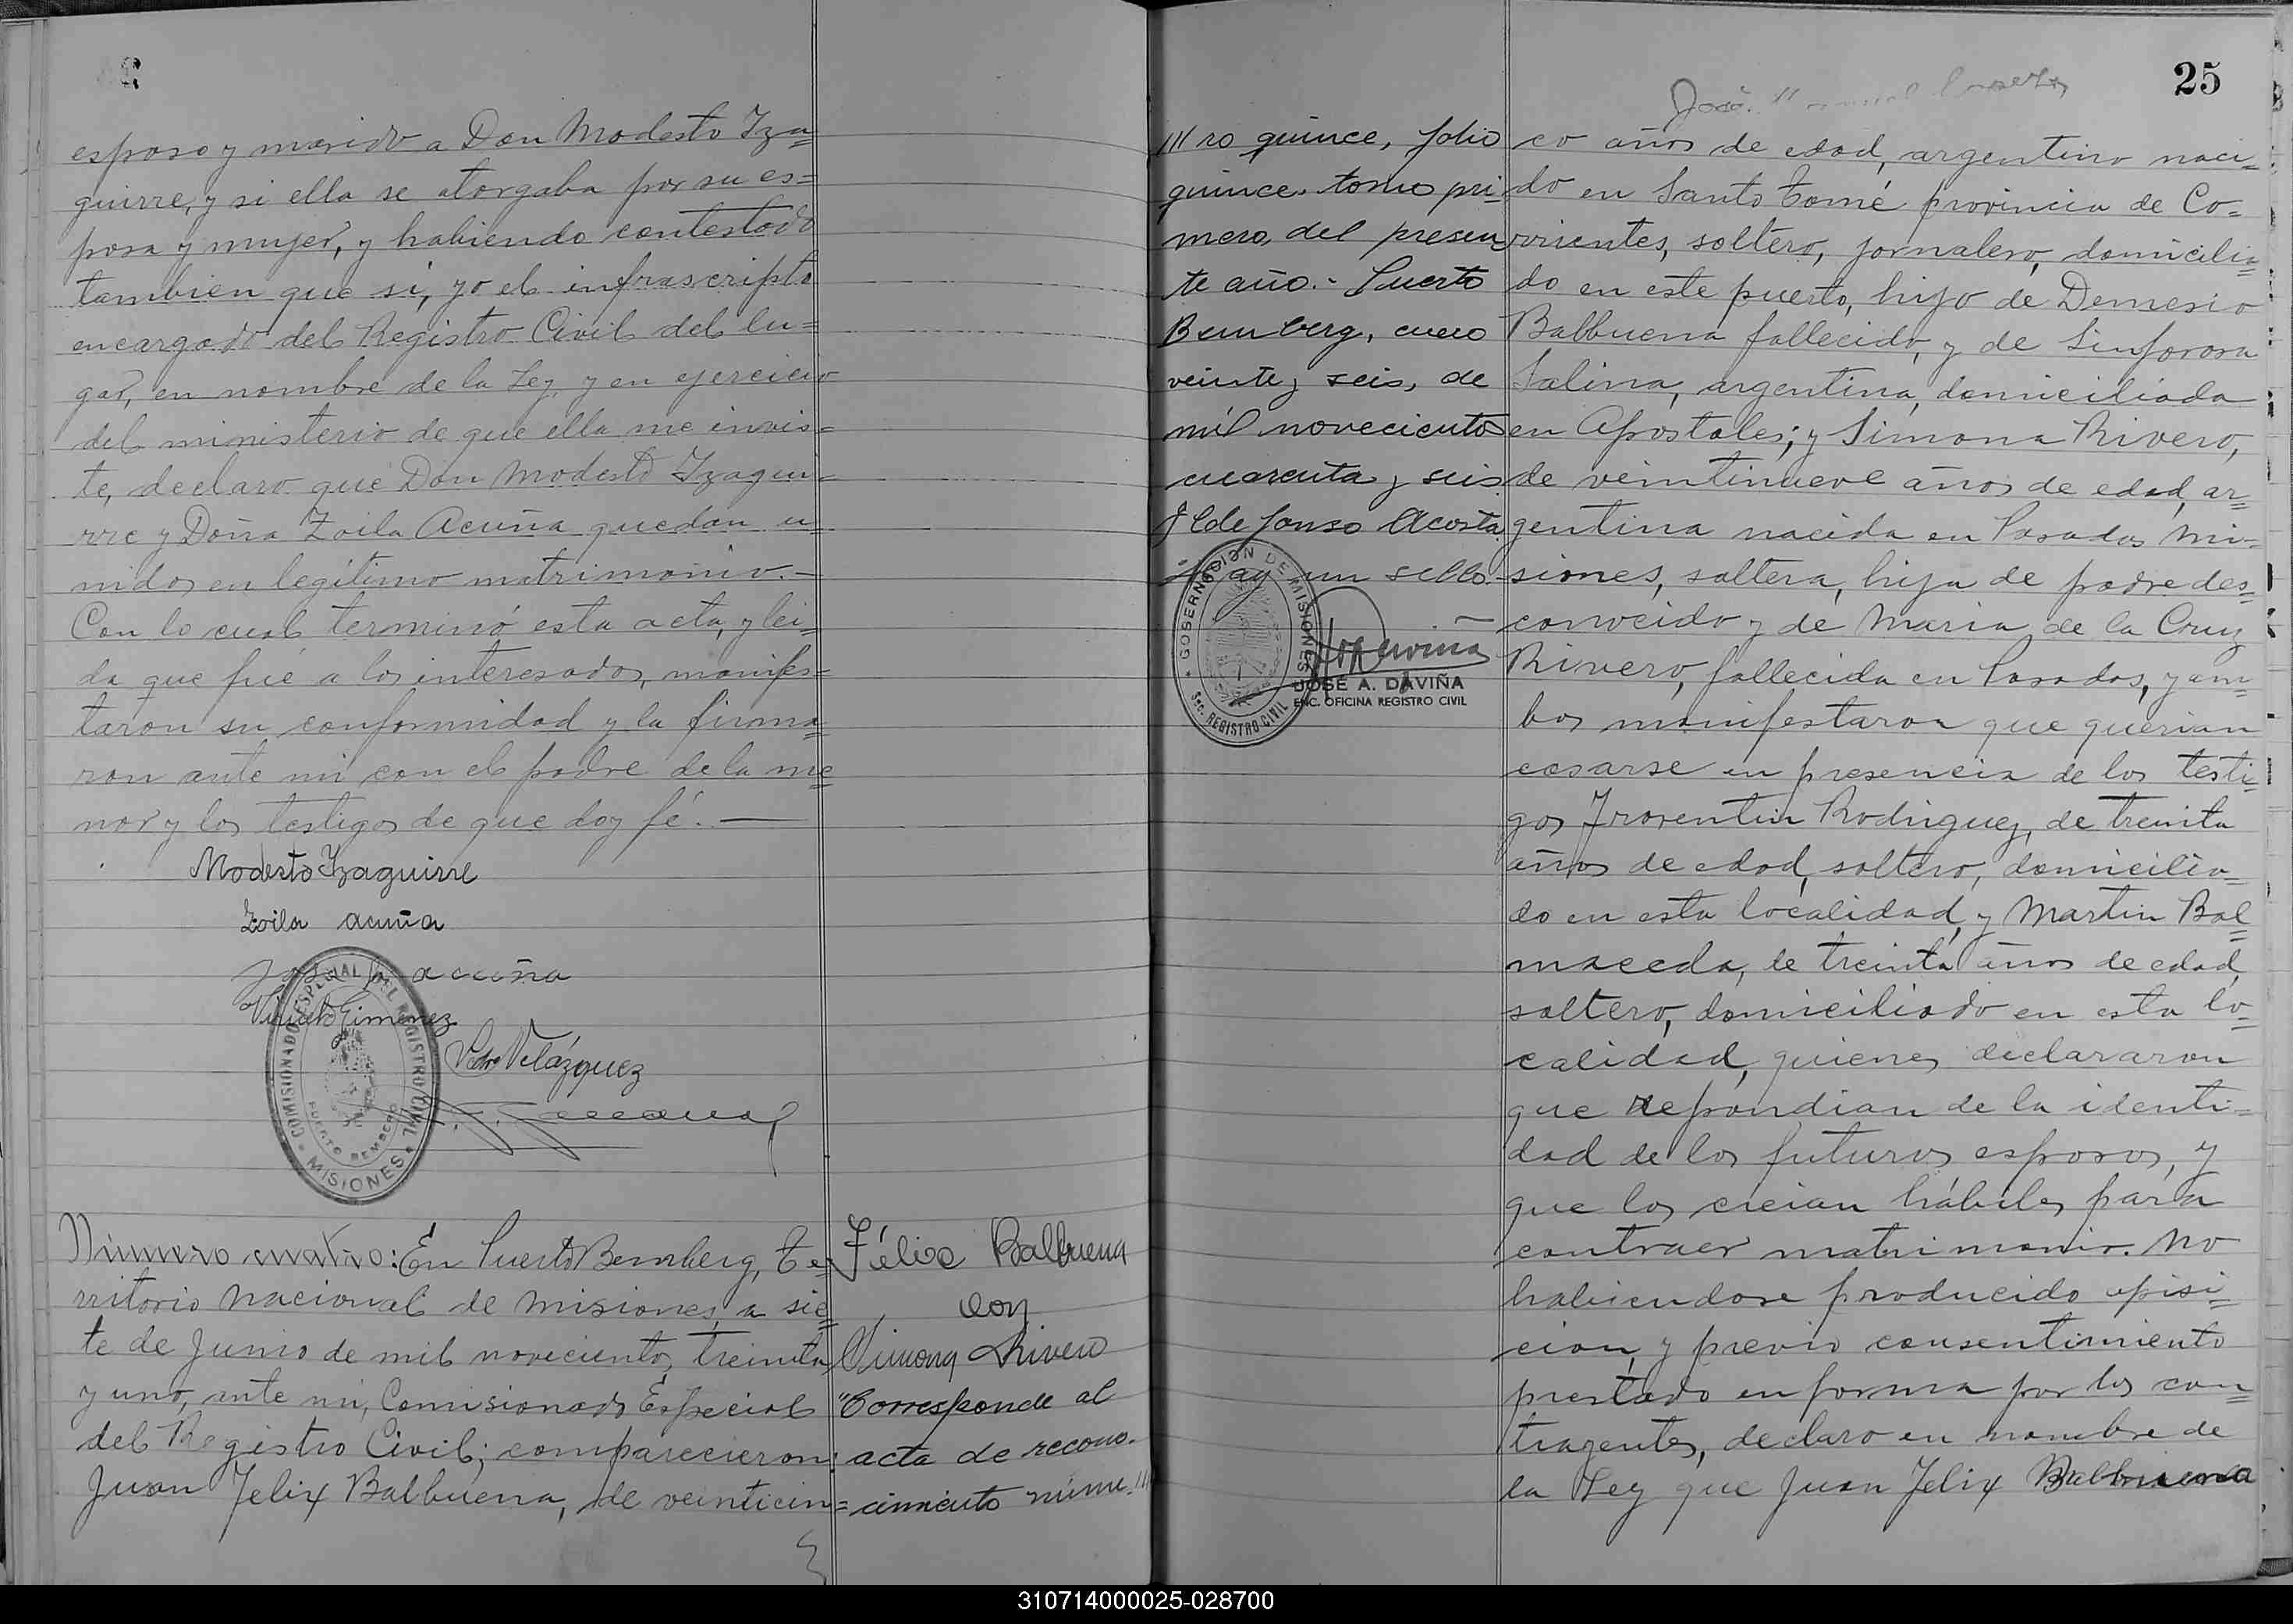 esposo y marido a Don Modesto Iza=
guirre, y si ella se otorgaba por su es=
posa y mujer, y habiendo contestado
tambien que si, yo el infrascripto
encargado del Registro Civil del lu=
gar, en nombre de la Ley, y en ejercicio
del ministerio de que ella me invis=
te, declaro que Don Modesto Izagui=
rre y Doña Zoila Acuña quedan u=
nidos en legítimo matrimonio.—
Con lo cual terminó esta acta, y lei=
da que fué a los interesados, manifes=
taron su conformidad y la firma=
ron ante mi con el padre de la me=
nor y los testigos de que doy fé.—
Modesto Izaguirre
Zoila acuña
acuña
Gimenez
Velázquez
COMISIONADO ESPECIAL DEL REGISTRO CIVIL
PUERTO BEMBERG
MISIONES
Número cuatro: En Puerto Bemberg, Te=
rritorio Nacional de Misiones, a sie=
te de Junio de mil novecientos treinta
y uno, ante mi, Comisionado Especial
del Registro Civil; comparecieron:
Juan Felix Balbuena, de veinticin=
Félix Balbuena
con
Simona Rivero
"Corresponde al
acta de recono-
cimiento núme-///
///ro quince, folio
quince, tomo pri-
mero, del presen
te año.- Puerto
Bemberg, enero
veinte y seis, de
mil novecientos
cuarenta y seis
Ildefonso Acosta
Hay un sello.-
GOBERNACION DE MISIONES
Sec. REGISTRO CIVIL
JOSÉ A. DAVIÑA
ENC. OFICINA REGISTRO CIVIL
25
José
co años de edad, argentino naci=
do en Santo Tomé provincia de Co=
rrientes, soltero, jornalero, domicilia=
do en este puerto, hijo de Demesio
Balbuena fallecido, y de Sinforosa
Salina, argentina, domiciliada
en Apostoles; y Simona Rivero,
de veintinueve años de edad, ar=
gentina nacida en Posadas Mi=
siones, soltera, hija de padre des=
conocido y de Maria de la Cruz
Rivero, fallecida en Posadas, y am=
bos manifestaron que querian
casarse en presencia de los testi=
gos Froventin Rodriguez, de treinta
años de edad, soltero, domicilia=
do en esta localidad, y Martin Bal=
maceda, de treinta años de edad,
soltero, domiciliado en esta lo=
calidad, quienes declararon
que repondian de la identi=
dad de los futuros esposos, y
que los creian hábiles para
contraer matrimonio. No
habiendose producido opisi=
cion, y previo consentimiento
prestado en forma por los con=
trayentes, declaro en nombre de
la Ley que Juan Felix Balbuena
310714000025-028700